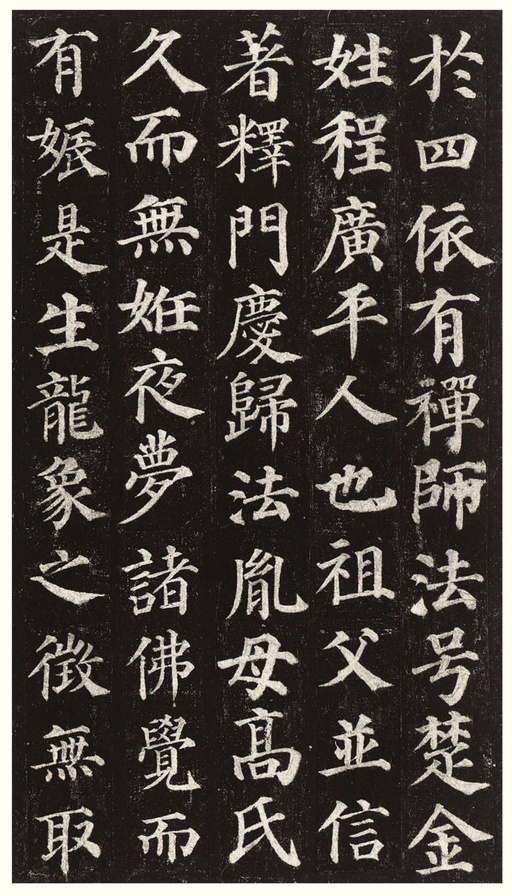 於四依有禪師法号楚金
姓程廣平人也祖父並信
著釋門慶歸法胤母高氏
久而無妊夜夢 諸佛覺而
有娠是生龍象之徵無取